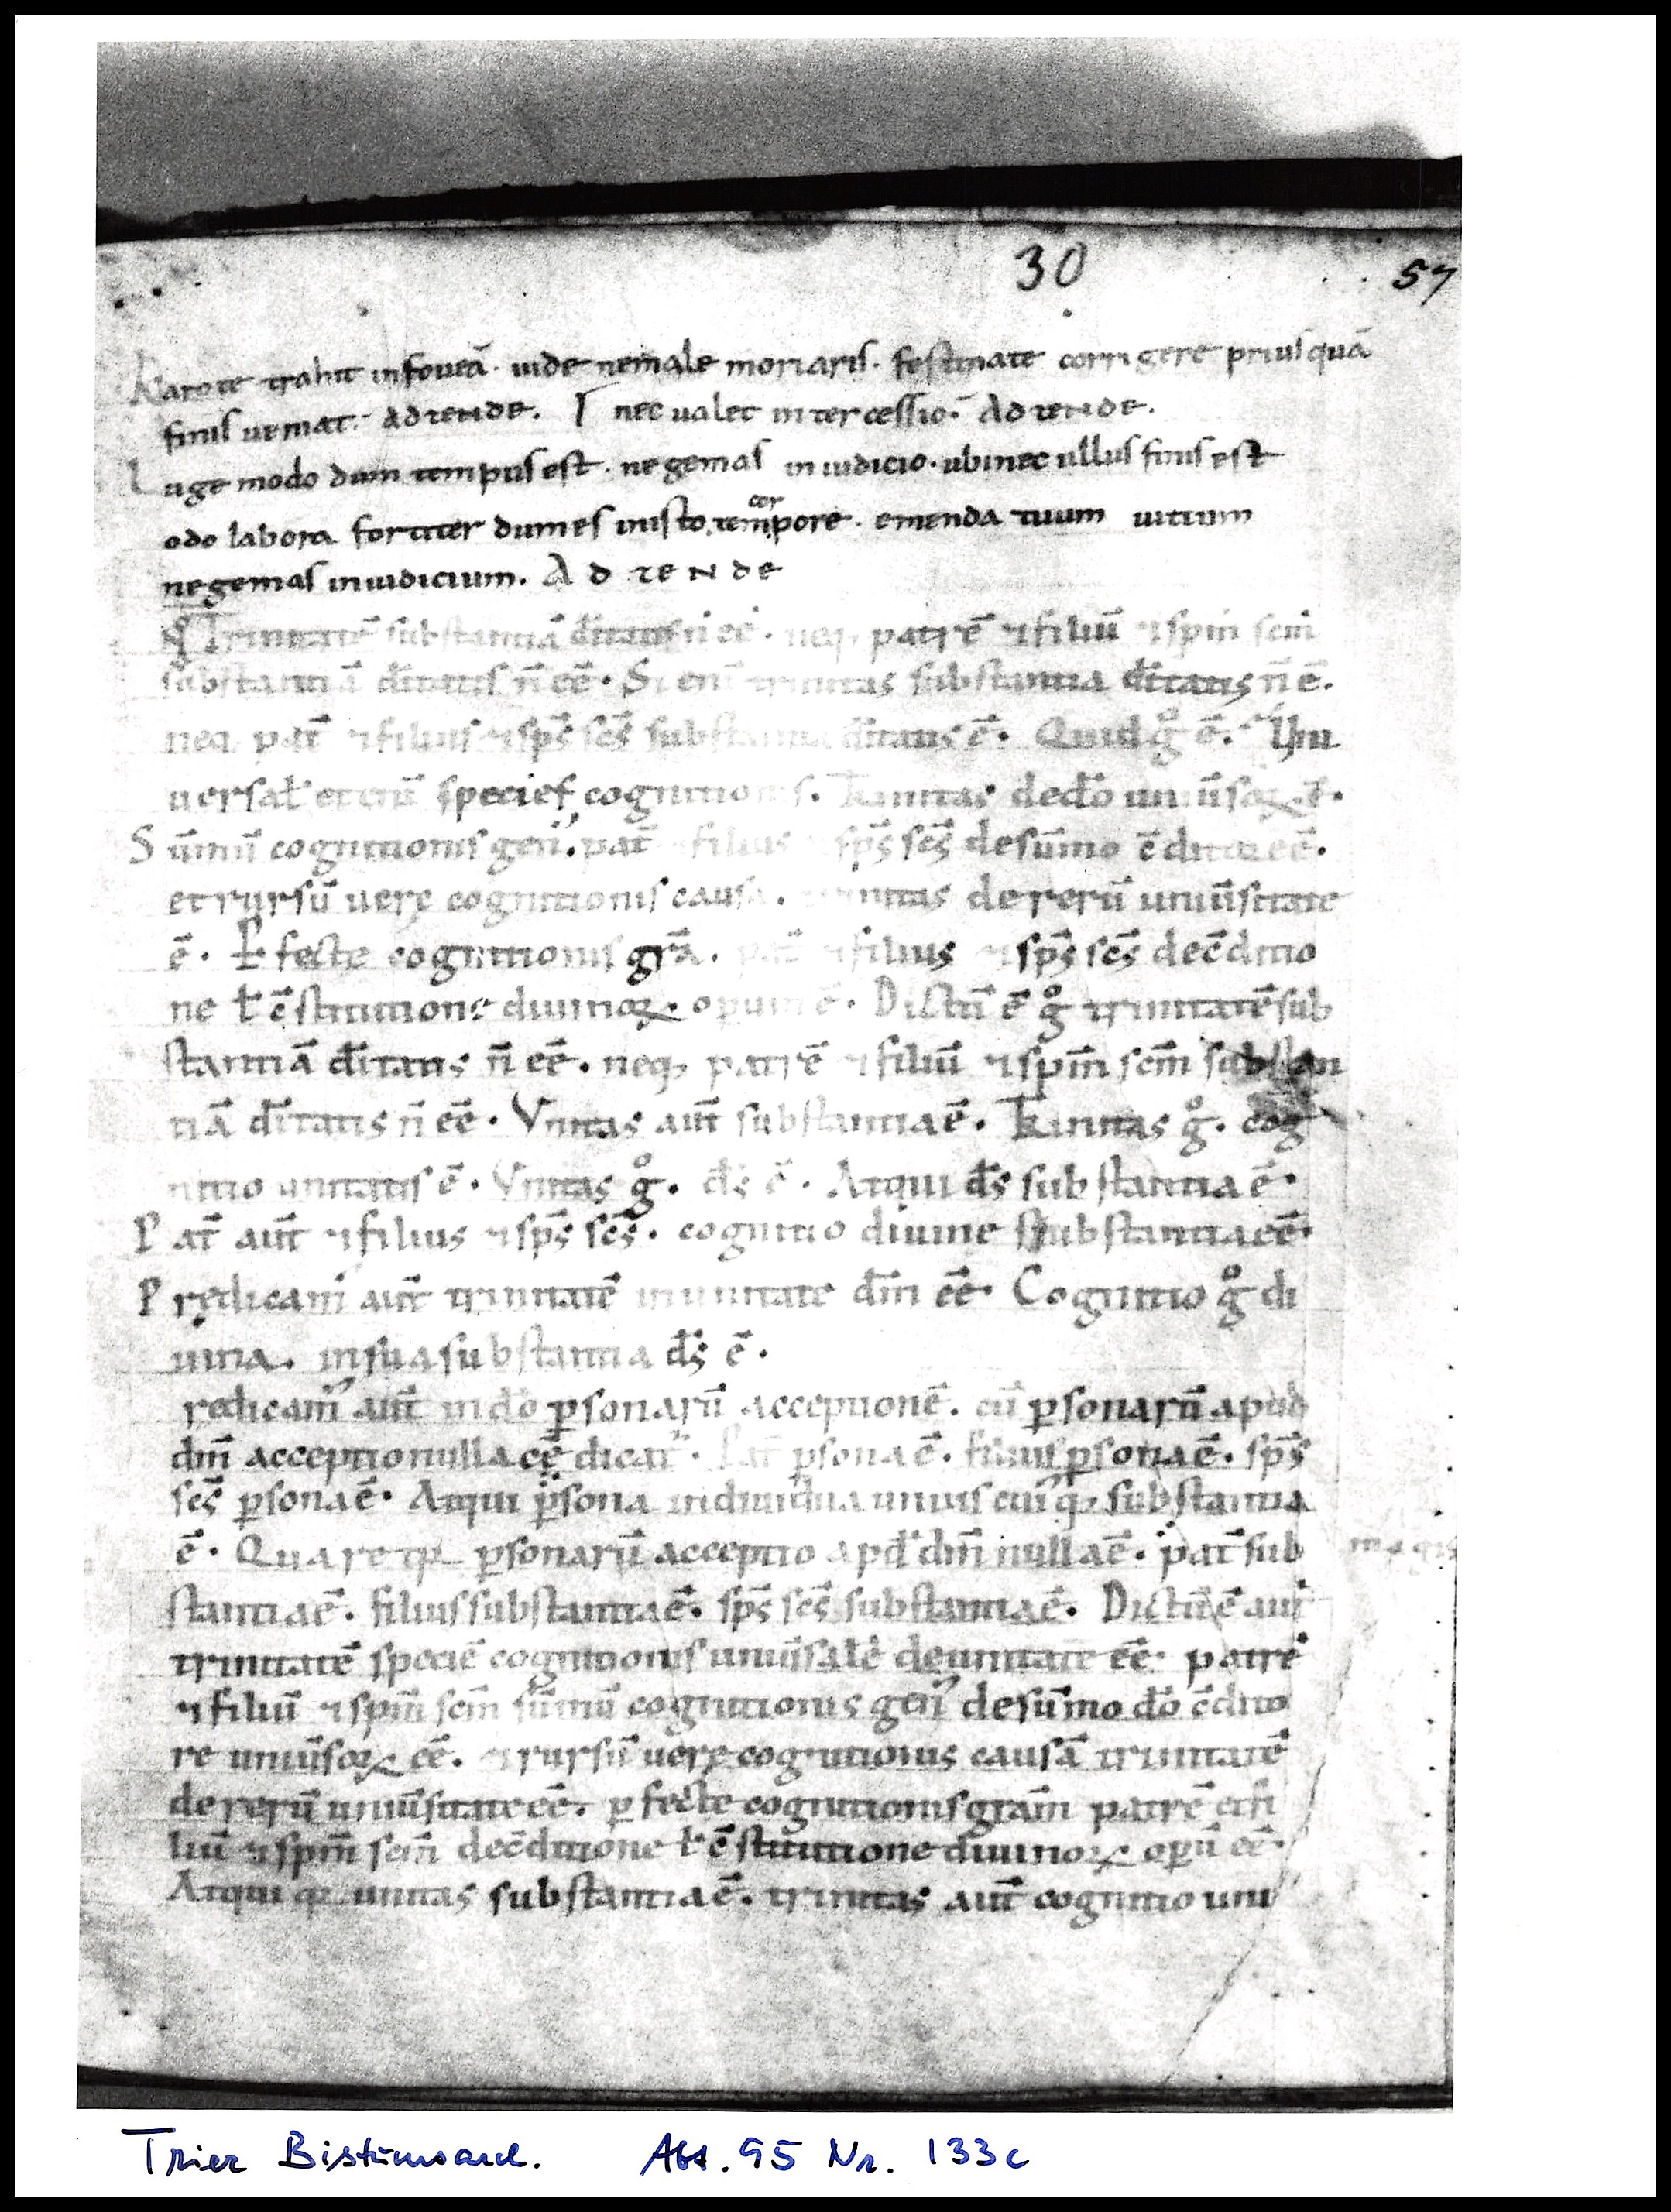 30
57
Karo te trahit in foueā · uide ne male moriaris · festinate corrigere priusquā
finis ueniat · ad tende. nec ualet intercessio · Ad tende.
Luge modo dum tempus est · ne gemas in iudicio · ubi nec ullus finis est
odo labora fortiter dum es in isto tempore · emenda tuum cor uitium
ne gemas in iudicium. Ad tende
Trinitatē substantiā dītatis n̄ eē · neq; patrē ⁊ filiū ⁊ spm̄ scm̄
substantiā dītatis n̄ eē · Si eni trinitas substantia dītatis n̄ ē.
neq pat̄ ⁊ filius ⁊ sps̄ scs̄ substantia dītatis ē · Quid gº ē. Uni
uersal speciei cognitionis. Trinitas de dō
Sūmū cognitionis gen᾽. pat̄ filius sps̄ scs̄ de sūmo ē ditore ē.
et rursū uerę cognitionis causa. trinitas de rerū uniūsitate
ē. Ꝑfecte cognitionis grā. pat̄ ⁊ filius ⁊ sps̄ scs̄ de c̄ditio
ne ł c̄stitutione diuinoꝝ · operum ē · Dictū ē gº trinitatē sub
stantiā dītatis n̄ eē · neq; patrē ⁊ filiū ⁊ spm̄ scm̄ substan
tiā dītatis n̄ eē · Vnitas aut̄ substantia ē · Trinitas gº. cog
nitio unitatis ē · Vnitas gº. ds̄ ē · Atqui ds̄ substantia ē ·
Pat̄ aut̄ ⁊ filius ⁊ sps̄ scs̄ · cognitio diuine substantia eē ·
Prędicam᾽ aut̄ trinitatē in unitate dm̄ eē · Cognitio gº di
uina. in sua substantia ds̄ ē.
redicam᾽ aut̄ in dō ꝑsonarū acceptionē. cū ꝑsonarū apud
dm̄ acceptio nulla eē dicat᾽. Pat̄ ꝑsona ē. filius ꝑsona ē. sps̄
scs̄ ꝑsona ē · Atqui ꝑsona indiuidua unius cui᾽q; substantia
ē · Quare ꝑsonarū acceptio apd̄ dm̄ nulla ē. pat̄ sub
stantia ē. filius substantia ē. sps̄ scs̄ substantia ē. Dictū ē aut̄
trinitatē speciē cognitionis uniūsalē de unitate eē · patrē
⁊ filiū ⁊ spm̄ scm̄ sūmū cognitionis gen᾽ de sūmo dō c̄dito
re uniūsoꝝ eē. ⁊ rursū uerę cognitionis causā trinitatē
de rerū uniūsitate eē. ꝑfecte cognitionis gram̄ patrē et fi
liū ⁊ spm̄ scm̄ de c̄ditione ł c̄stitutione diuinoꝝ oꝑū eē ·
Atqui unitas substantia ē. trinitas aut̄ cognitio uni
Trier Bistumsarch. Abt. 95 Nr. 133c